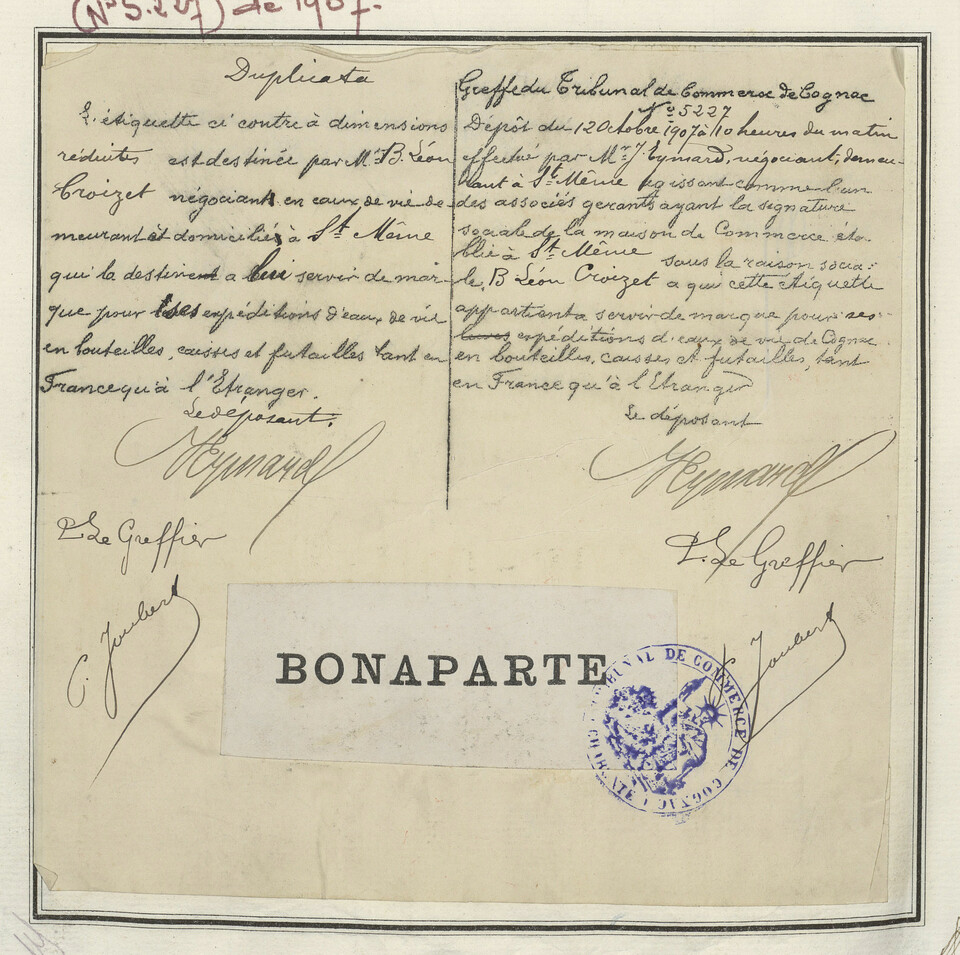 (Nº 5.227) de 1907.
Duplicata
L'étiquette ci contre à dimensions
réduites est destinée par Mr B. Léon
Croizet négociant en eaux de vie de-
meurant et domicilié à St Même
qui la destine a lui servir de mar-
que pour ses expéditions d'eaux de vie
en bouteilles, caisses et futailles tant en
France qu'à l'Etranger.
Le déposant,
Hymard
P. Le Greffier
C. Joubert
Greffe du Tribunal de Commerce de Cognac
Nº 5227
Dépôt du 12 Octobre 1907 à 10 heures du matin
effectué par Mr J. Eymard, négociant, demeu-
rant à St Même agissant comme l'un
des associés gerants ayant la signature
sociale de la maison de Commerce éta-
blie à St Même sous la raison socia-
le, B Léon Croizet a qui cette étiquette
appartient a servir de marque pour ses
expéditions d'eaux de vie de Cognac
en bouteilles, caisses et futailles, tant
en France qu'à l'Etranger
Le déposant
Hymard
P. Le Greffier
Joubert
BONAPARTE
TRIBUNAL DE COMMERCE DE COGNAC